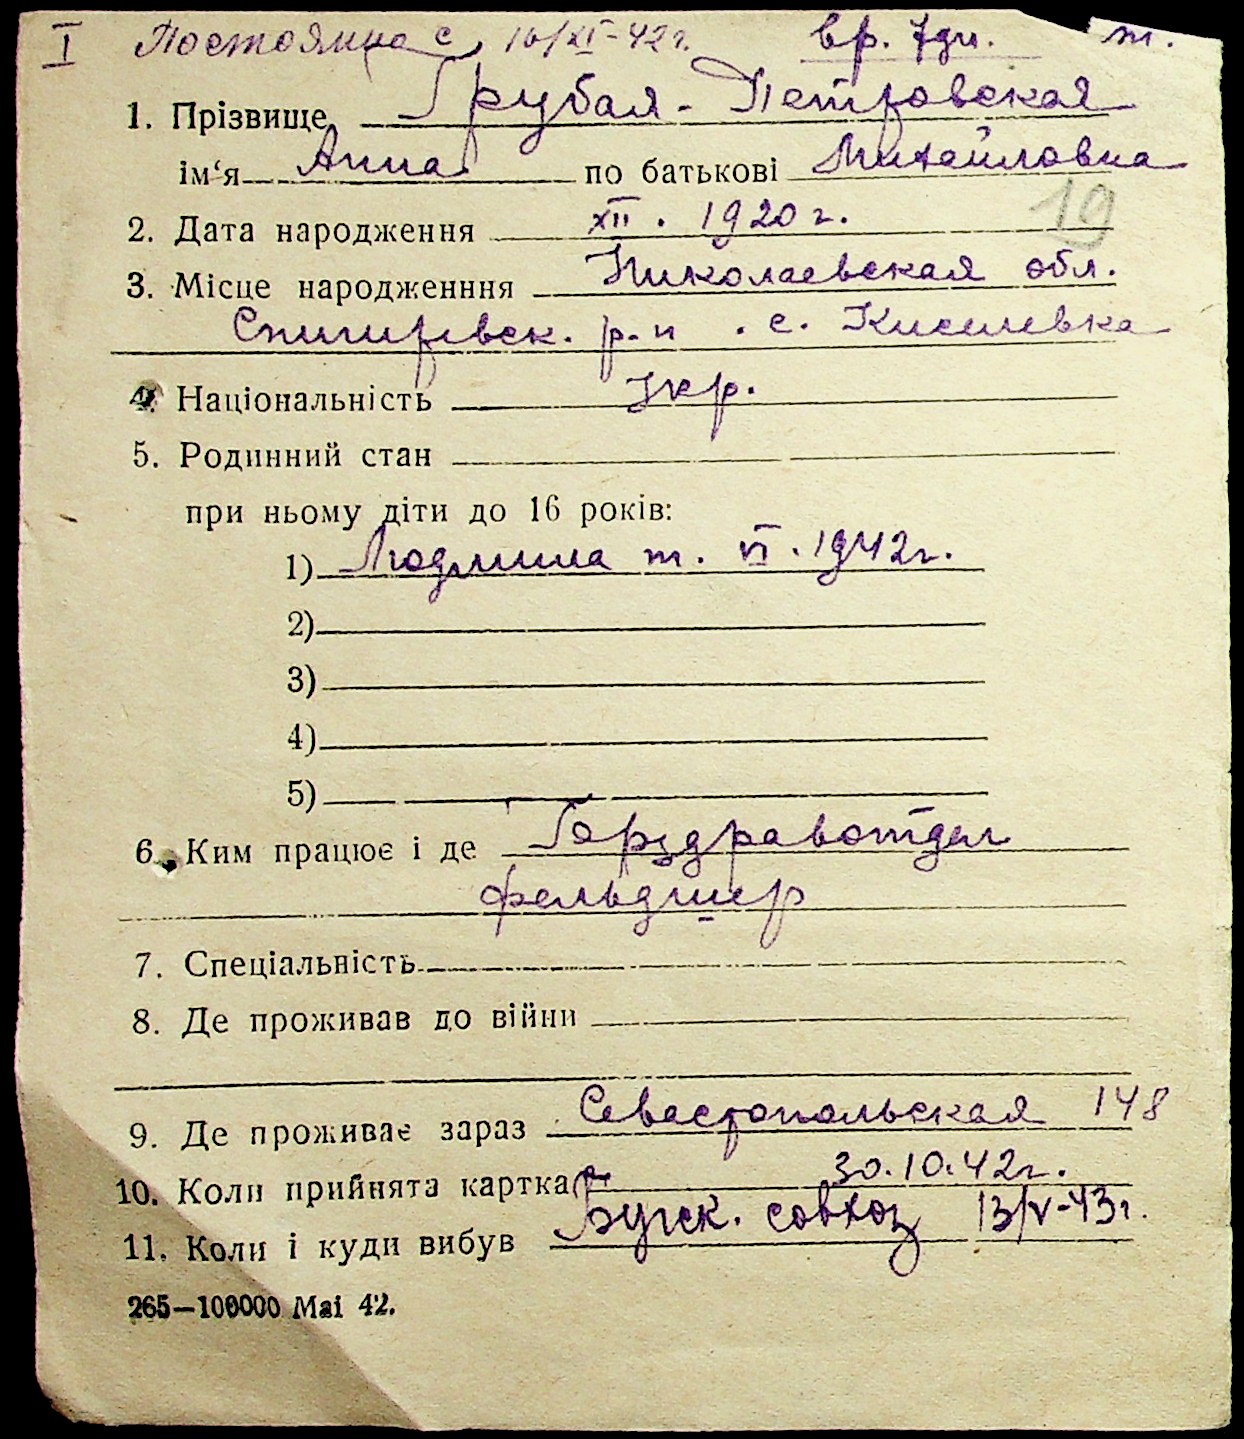 I Постоянно с 16/XI-42г. вр. 7дн. т.
1. Прізвище Грубая-Петровская
ім‘я Анна по батькові Михайловна
2. Дата народження XII. 1920 г.
19
3. Місце народженння Николаевская обл.
Снигирёвск. р-н. с. Киселевка
4. Національність Укр.
5. Родинний стан
при ньому діти до 16 років:
1) Людмила т. VI. 1942г.
2)
3)
4)
5)
6. Ким працює і де Горздравотдел
фельдшер
7. Спеціальність
8. Де проживав до війни
9. Де проживає зараз Севастопольская 148
10. Коли прийнята картка 30.10.42г.
11. Коли і куди вибув Бугск. совхоз 13/V-43г.
265—100000 Mai 42.